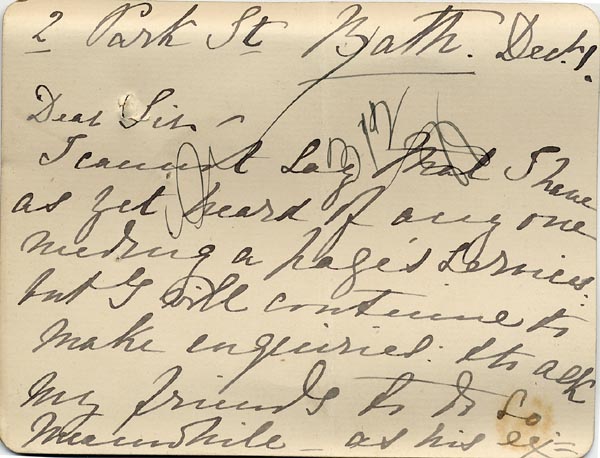 2 Park St Bath. Dec. 1.
Dear Sir
I cannot say that I have
as yet heard of any one
needing a page's services
but I will continue to
make enquiries & to ask
my friends to do so
Meanwhile - as his ex=